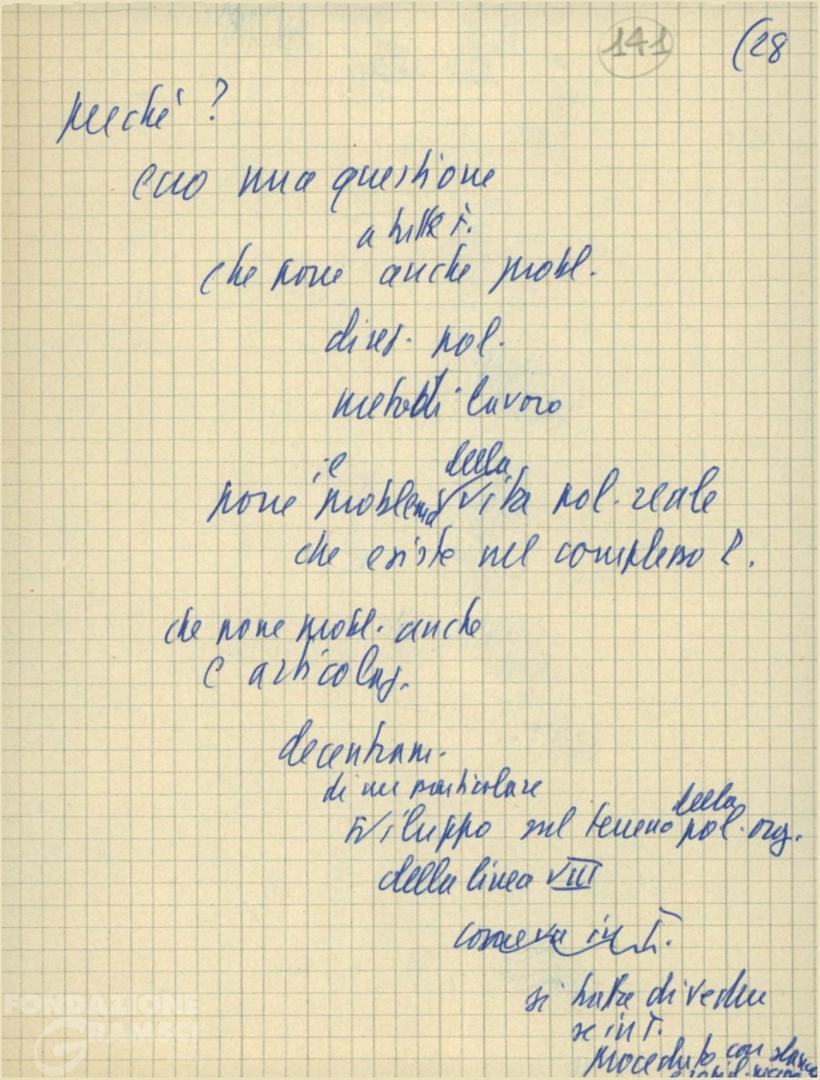 141
(28
perché?
ecco una questione
a tutte F.
che pone anche probl.
direz. pol.
metodi lavoro
pone il problema della vita pol. reale
che esiste nel complesso P.
che pone probl. anche
e articolaz.
decentram.
di un particolare
sviluppo sul terreno della pol. org.
della linea VIII
come va in F.
si tratta di vedere
se in F.
proceduto con slancio
FONDAZIONE
GRAMSCI